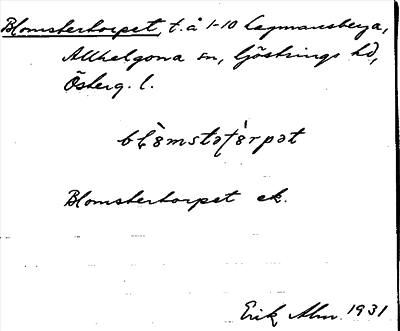 Blomstertorpet, t. å 1-10 Legmansberga,
Allhelgona sn, Göstrings hd,
Österg. l.
Blomstertorpet ek.
Erik Alm 1931